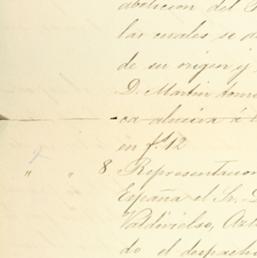 abolicion del
las cuales se d
de su origen y
D. Martin
en f.s 12
" " 8 Representacion
España el Sr. D
Valdivielso, Arz
do el despacho